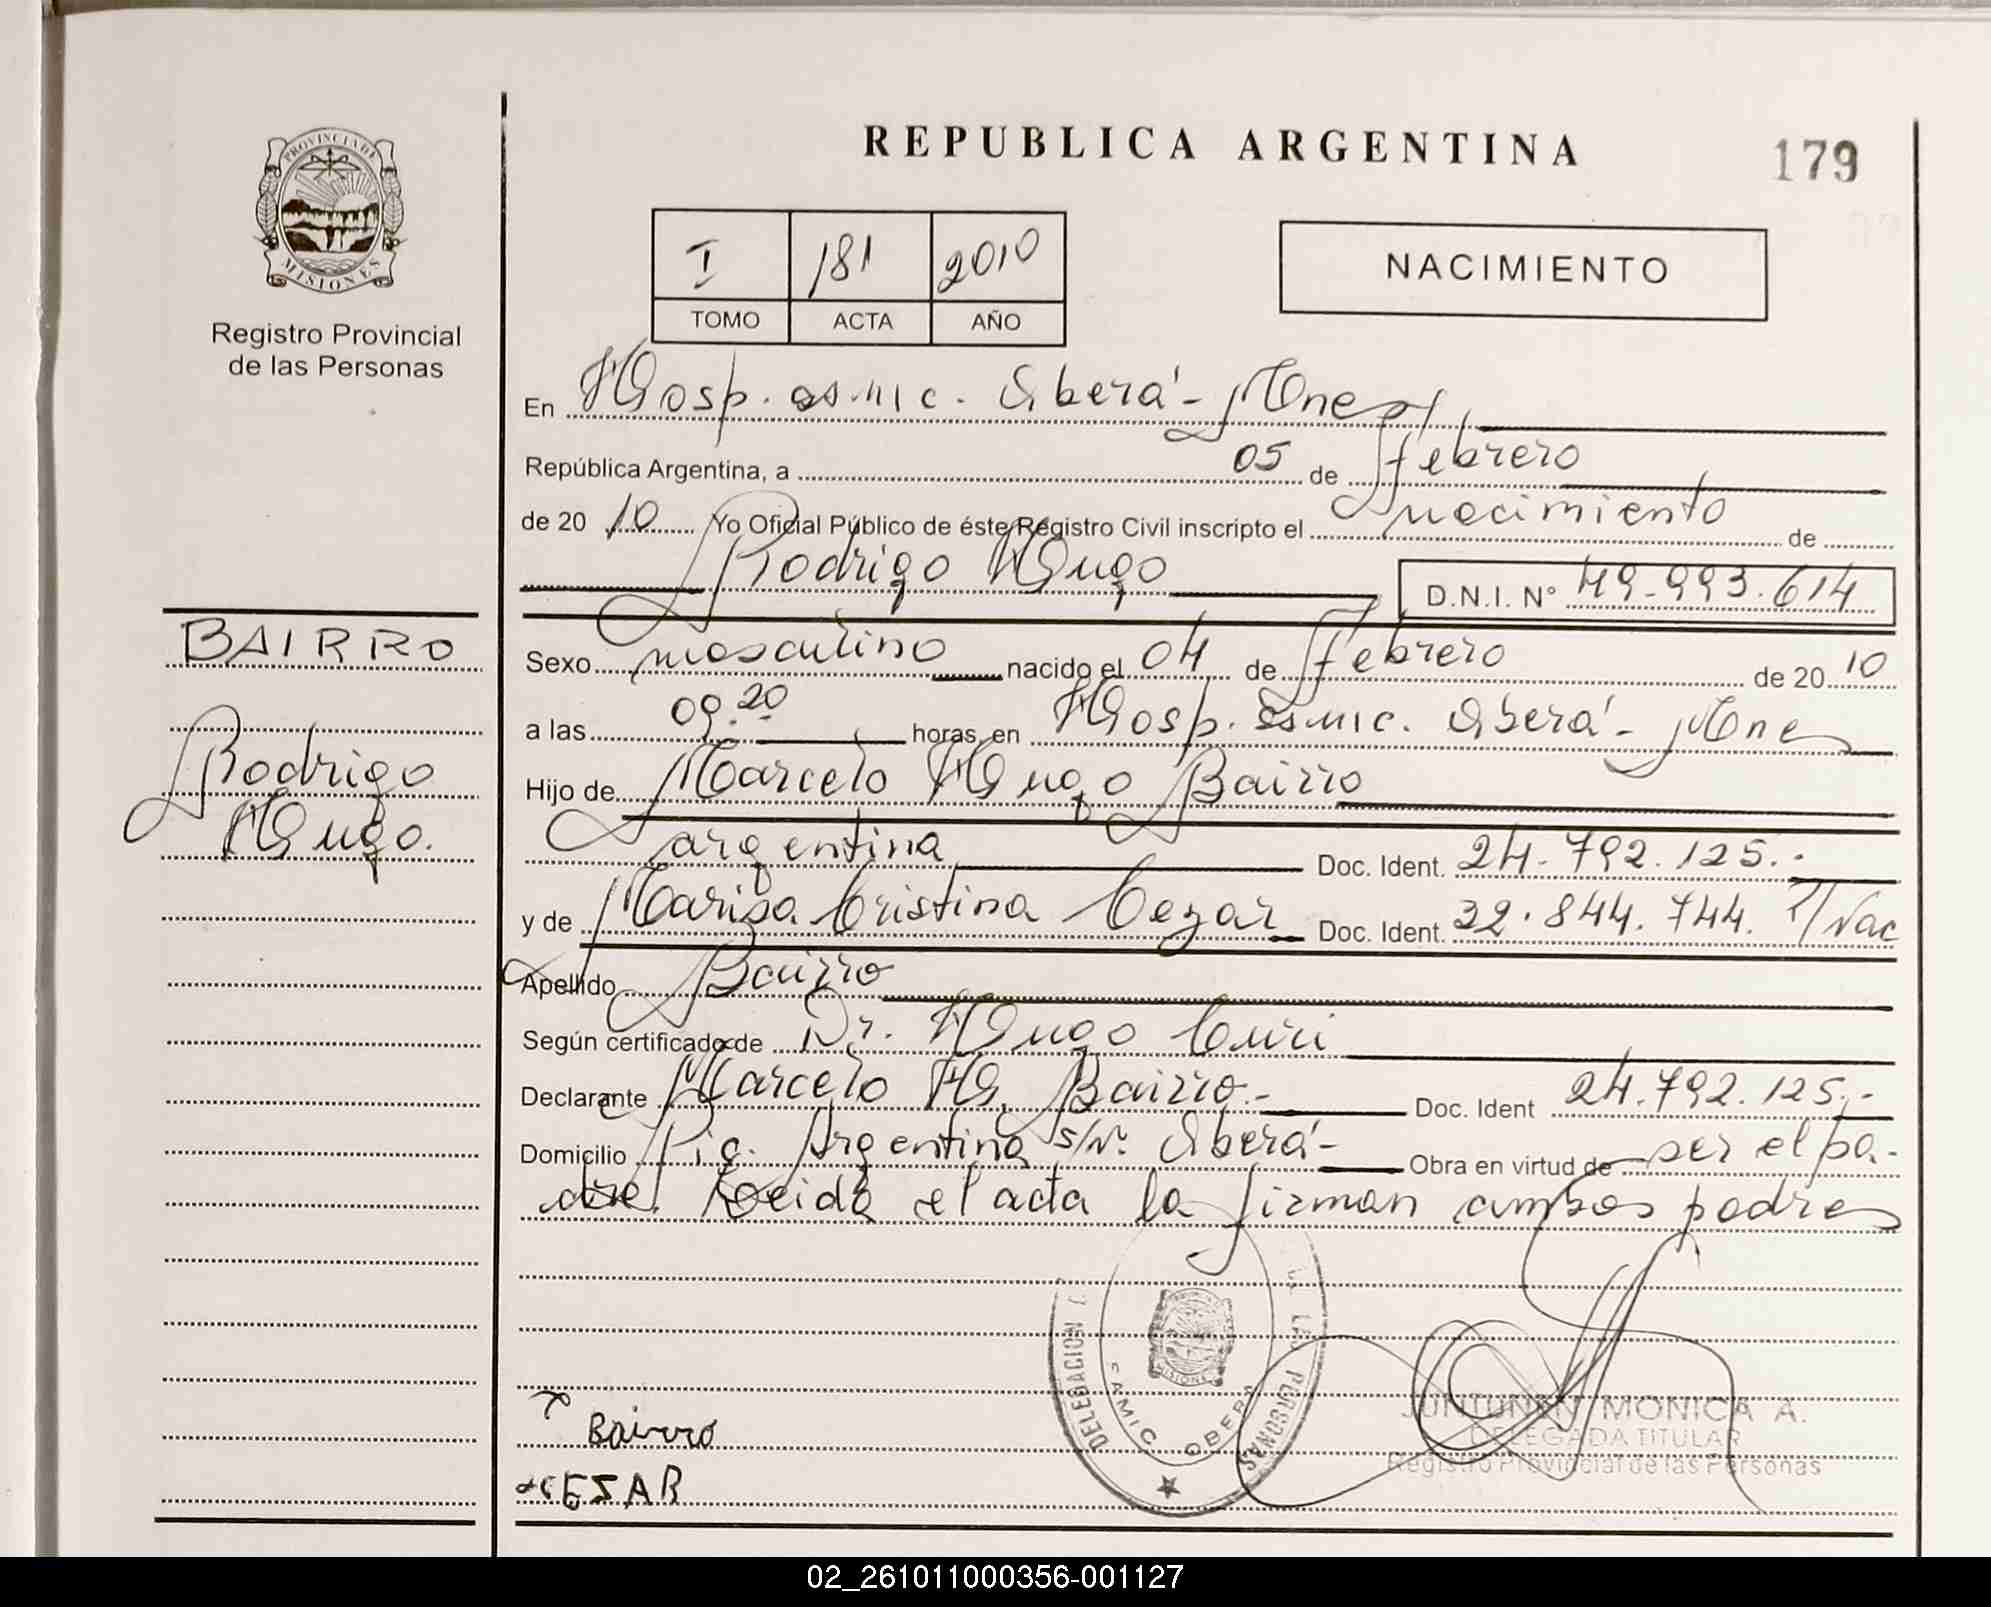 REPUBLICA ARGENTINA
179
PROVINCIA DE
MISIONES
Registro Provincial
de las Personas
I 181 2010
TOMO ACTA AÑO
NACIMIENTO
En Hosp. Oberá - Mnes
República Argentina, a 05 de febrero
de 20 10 Yo Oficial Público de éste Registro Civil inscripto el nacimiento de
Rodrigo Hugo D.N.I. N° 49.993.614
BAIRRO
Rodrigo
Hugo.
Sexo masculino nacido el 04 de febrero de 20 10
a las 09.20 horas, en Hosp. Oberá - Mnes
Hijo de Marcelo Hugo Bairro
argentina Doc. Ident. 24.792.125.-
y de Marisa Cristina Cezar Doc. Ident. 32.844.744. Nac
Apellido Bairro
Según certificado de Dr. Hugo Curi
Declarante Marcelo H. Bairro.- Doc. Ident 24.792.125.-
Domicilio Pic. Argentina s/n° Oberá- Obra en virtud de ser el pa-
dre. Leida el acta la firman ambos padres
DELEGACION LAS PERSONAS
SAMIC OBERA
MISIONES
Bairro
CEZAR
JUNTUNEN MONICA A.
DELEGADA TITULAR
Registro Provincial de las Personas
02_261011000356-001127